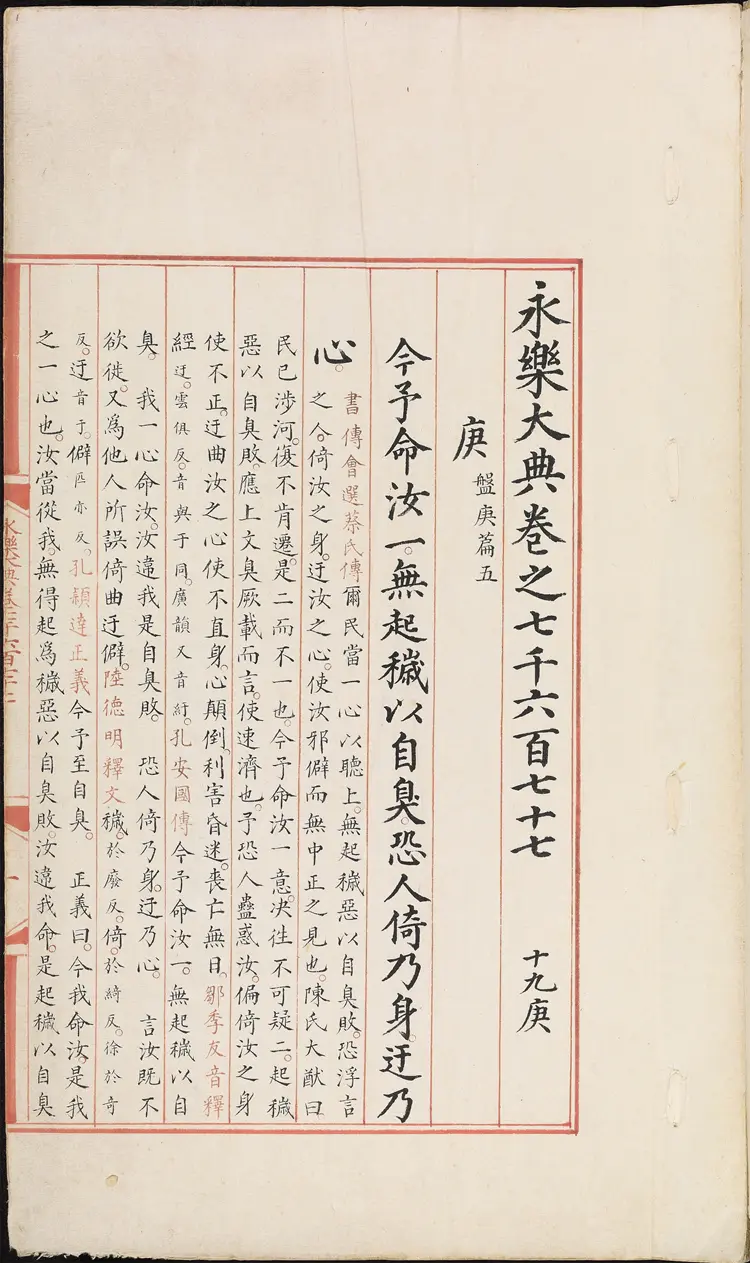 永樂大典卷之七千六百七十七 十九庚
庚 盤庚篇五
今予命汝一。無起穢以自臭。恐人倚乃身。迂乃
心。書傳會選蔡氏傳爾民當一心以聽上。無起穢惡以自臭敗。恐浮言
之人。倚汝之身。迂汝之心。使汝邪僻而無中正之見也。陳氏大猷曰
民已涉河。復不肯遷。是二而不一也。今予命汝一意。决徃不可疑二。起穢
惡以自臭敗。應上文臭厥載而言。使速濟也。予恐人蠱惑汝。偏倚汝之身
使不正。迂曲汝之心使不直。身心顛倒。利害昏迷。喪亡無日。鄒季友音釋
經迂。雲俱反。音與于同。廣韻又音紆。孔安國傳今予命汝一。無起穢以自
臭。 我一心命汝。汝違我是自臭敗。 恐人倚乃身。迂乃心。 言汝既不
欲徙。又爲他人所誤倚曲迂僻。陸德明釋文穢。於廢反。倚。於綺反。徐於奇
反。迂音于。僻。匹亦反。孔穎達正義今予至自臭。 正義曰。今我命汝。是我
之一心也。汝當從我。無得起爲穢惡以自臭敗。汝違我命。是起穢以自臭